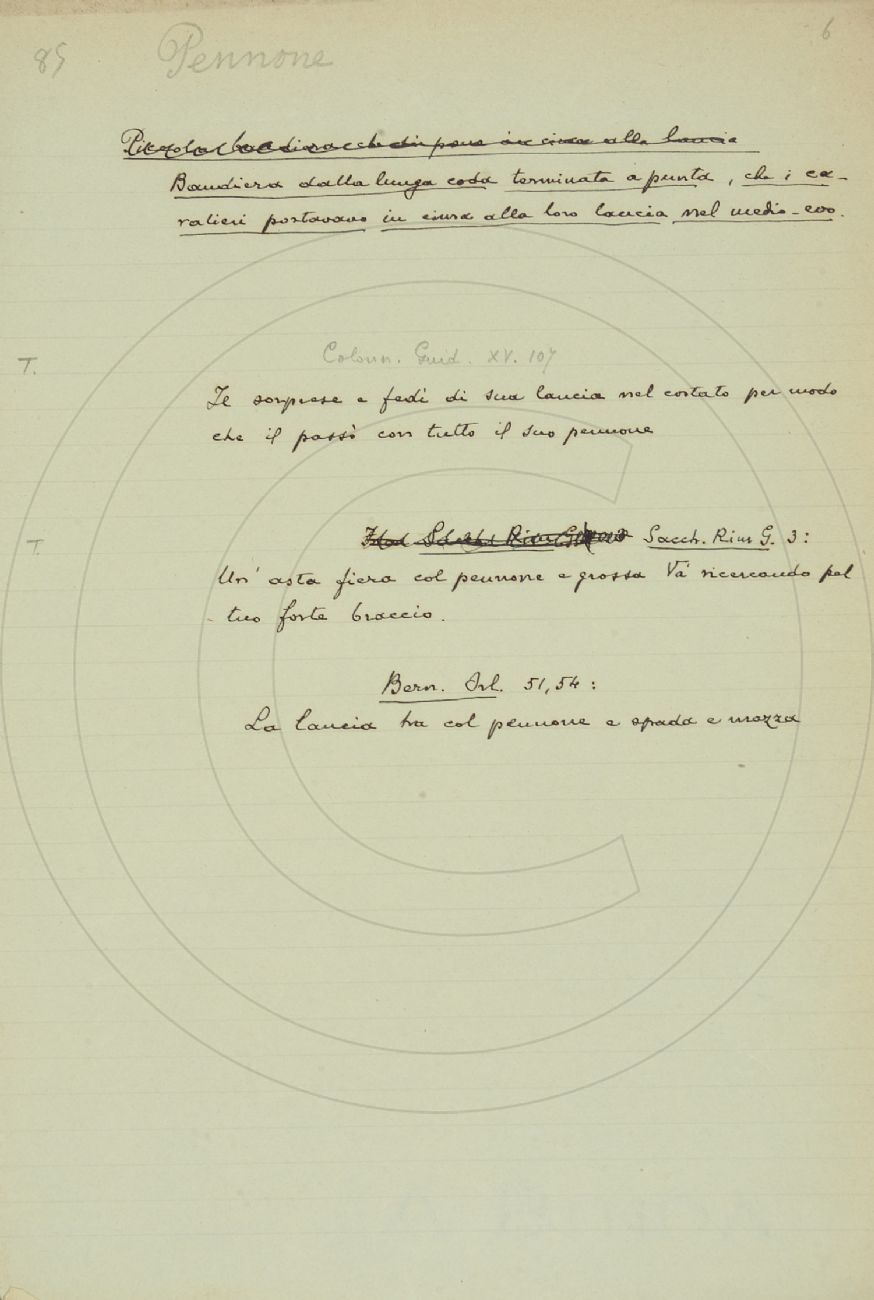 85 Pennone 6
Piccola bandiera che si pone in cima alla lancia
Bandiera dalla lunga coda terminata a punta, che i ca-
valieri portavano in cima alla loro lancia nel medio-evo.
T. Colonn. Guid. XV. 107
Le sorprese e fedì di sua lancia nel costato per modo
che il passò con tutto il suo pennone
T. Sacch. Rim G. 3:
Un' asta fiera col pennone e grossa Va' ricercando pel
tuo forte braccio.
Bern. Orl. 51, 54:
La lancia ha col pennone e spada e mazza